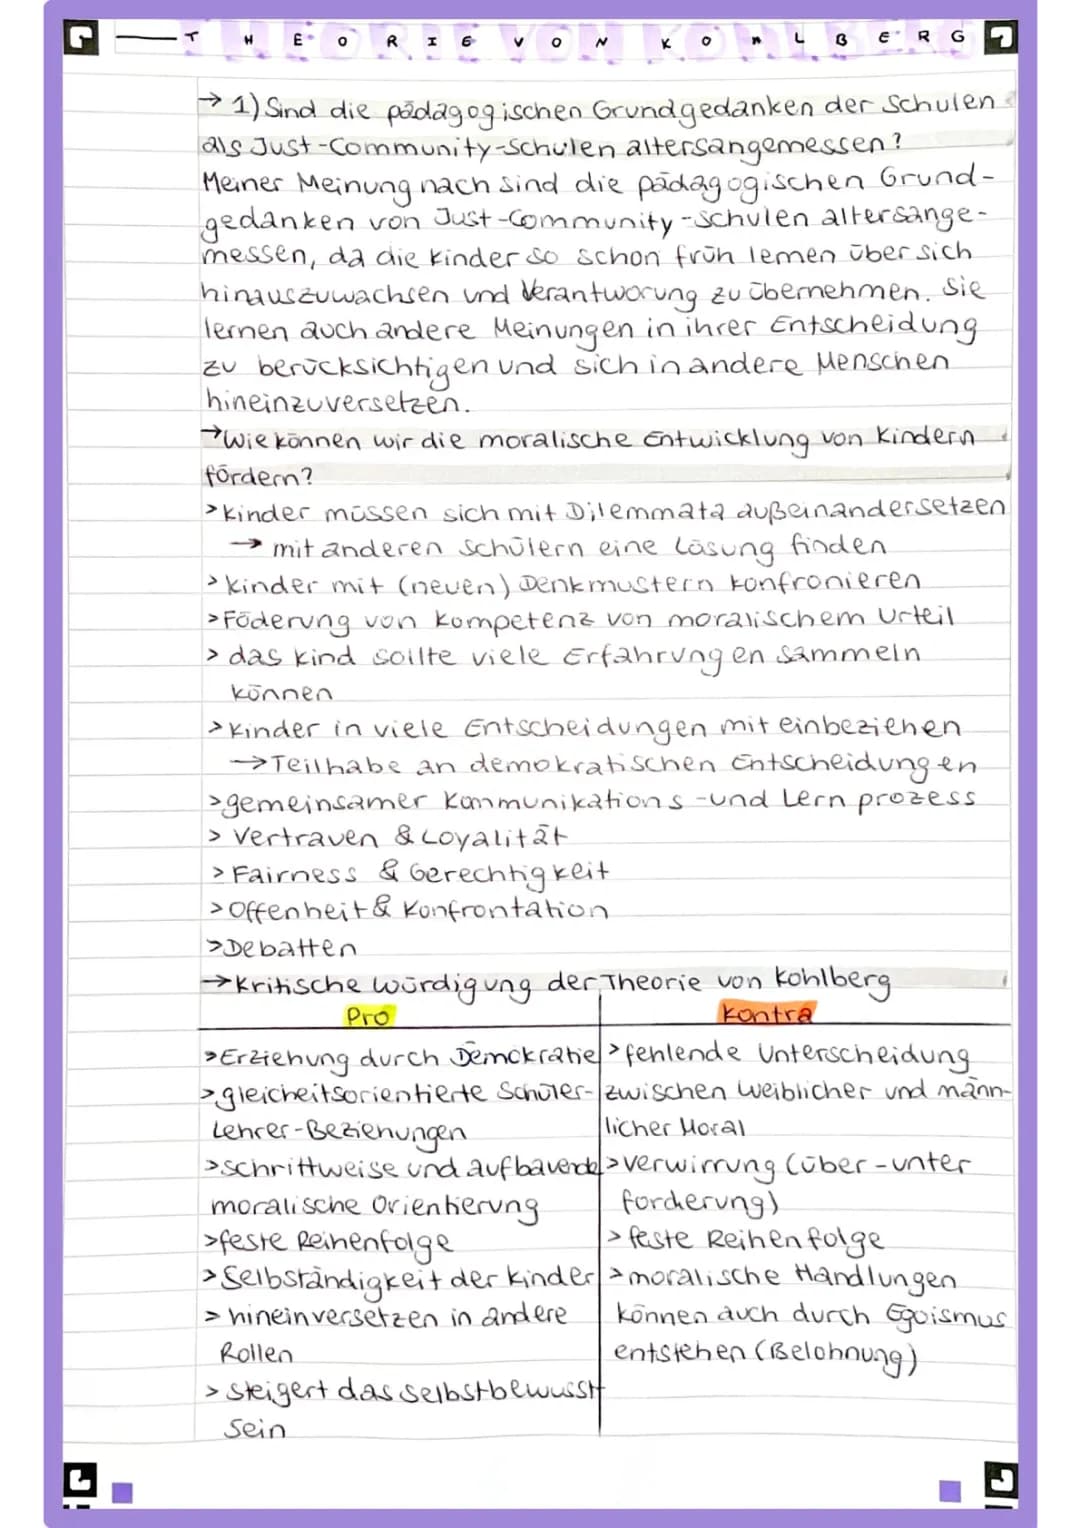 THEORIE VON KOHLBERG
→ 1) Sind die pädagogischen Grundgedanken der Schulen
als Just-Community-Schulen altersangemessen?
Meiner Meinung nach sind die pädagogischen Grund-
gedanken von Just-Community-Schulen altersange-
messen, da die Kinder so schon früh lernen über sich
hinauszuwachsen und Verantworung zu übernehmen. Sie
lernen auch andere Meinungen in ihrer Entscheidung
zu berücksichtigen und sich in andere Menschen
hineinzuversetzen.
→ Wie können wir die moralische Entwicklung von Kindern
fördern?
> Kinder müssen sich mit Dilemmata außeinandersetzen
→ mit anderen Schülern eine Läsung finden
> Kinder mit (neuen) Denkmustern konfronieren
> Föderung von Kompetenz von moralischem Urteil
> das Kind sollte viele Erfahrungen sammeln
können
> Kinder in viele Entscheidungen mit einbeziehen
→ Teilhabe an demokratischen Entscheidungen
> gemeinsamer Kommunikations-und Lernprozess
> Vertrauen & Loyalität
> Fairness & Gerechtigkeit
> Offenheit & Konfrontation
> Debatten
→ Kritische Würdigung der Theorie von Kohlberg
Pro
> Erziehung durch Demokratie
> gleicheitsorientierte Schüler-
Lehrer-Beziehungen
> schrittweise und aufbauende
moralische Orientierung
> feste Reihenfolge
> Selbständigkeit der Kinder
> hineinversetzen in andere
Rollen
> steigert das Selbstbewusst
sein
Kontra
> fehlende Unterscheidung
zwischen weiblicher und männ-
licher Moral
> verwirrung (über-unter
forderung)
> feste Reihenfolge
> moralische Handlungen
können auch durch Egoismus
entstehen (Belohnung)